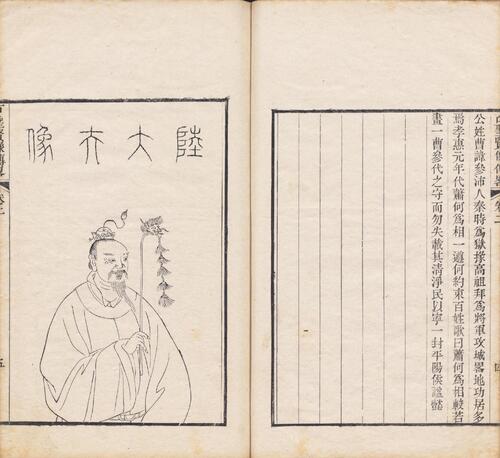 古聖賢像傳畧 卷二
四
公姓曹諱參沛人秦時爲獄掾高祖拜爲將軍攻城畧地功居多
焉孝惠元年代蕭何爲相一遵何約束百姓歌曰蕭何爲相較若
畫一曹參代之守而勿失載其清淨民以寧一封平陽侯諡懿
陸大夫像
古聖賢像傳畧 卷二
五